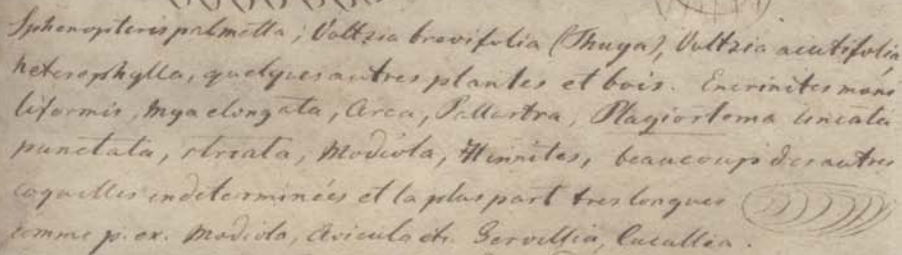 Sphenopteris palmetta; Voltzia brevifolia (Thuya), Voltzia acutifolia,
heterophylla, quelques autres plantes et bois. Encrinites moni
liformis, Mya elongata, Arca, Pullastra, Plagiostoma lineata
punctata, striata, Modiola, Hinnites, beaucoup des autres
coquilles indeterminées et la plus part tres longues
comme p. ex. Modiola, Avicula etc. Gervillia, Cucullea.